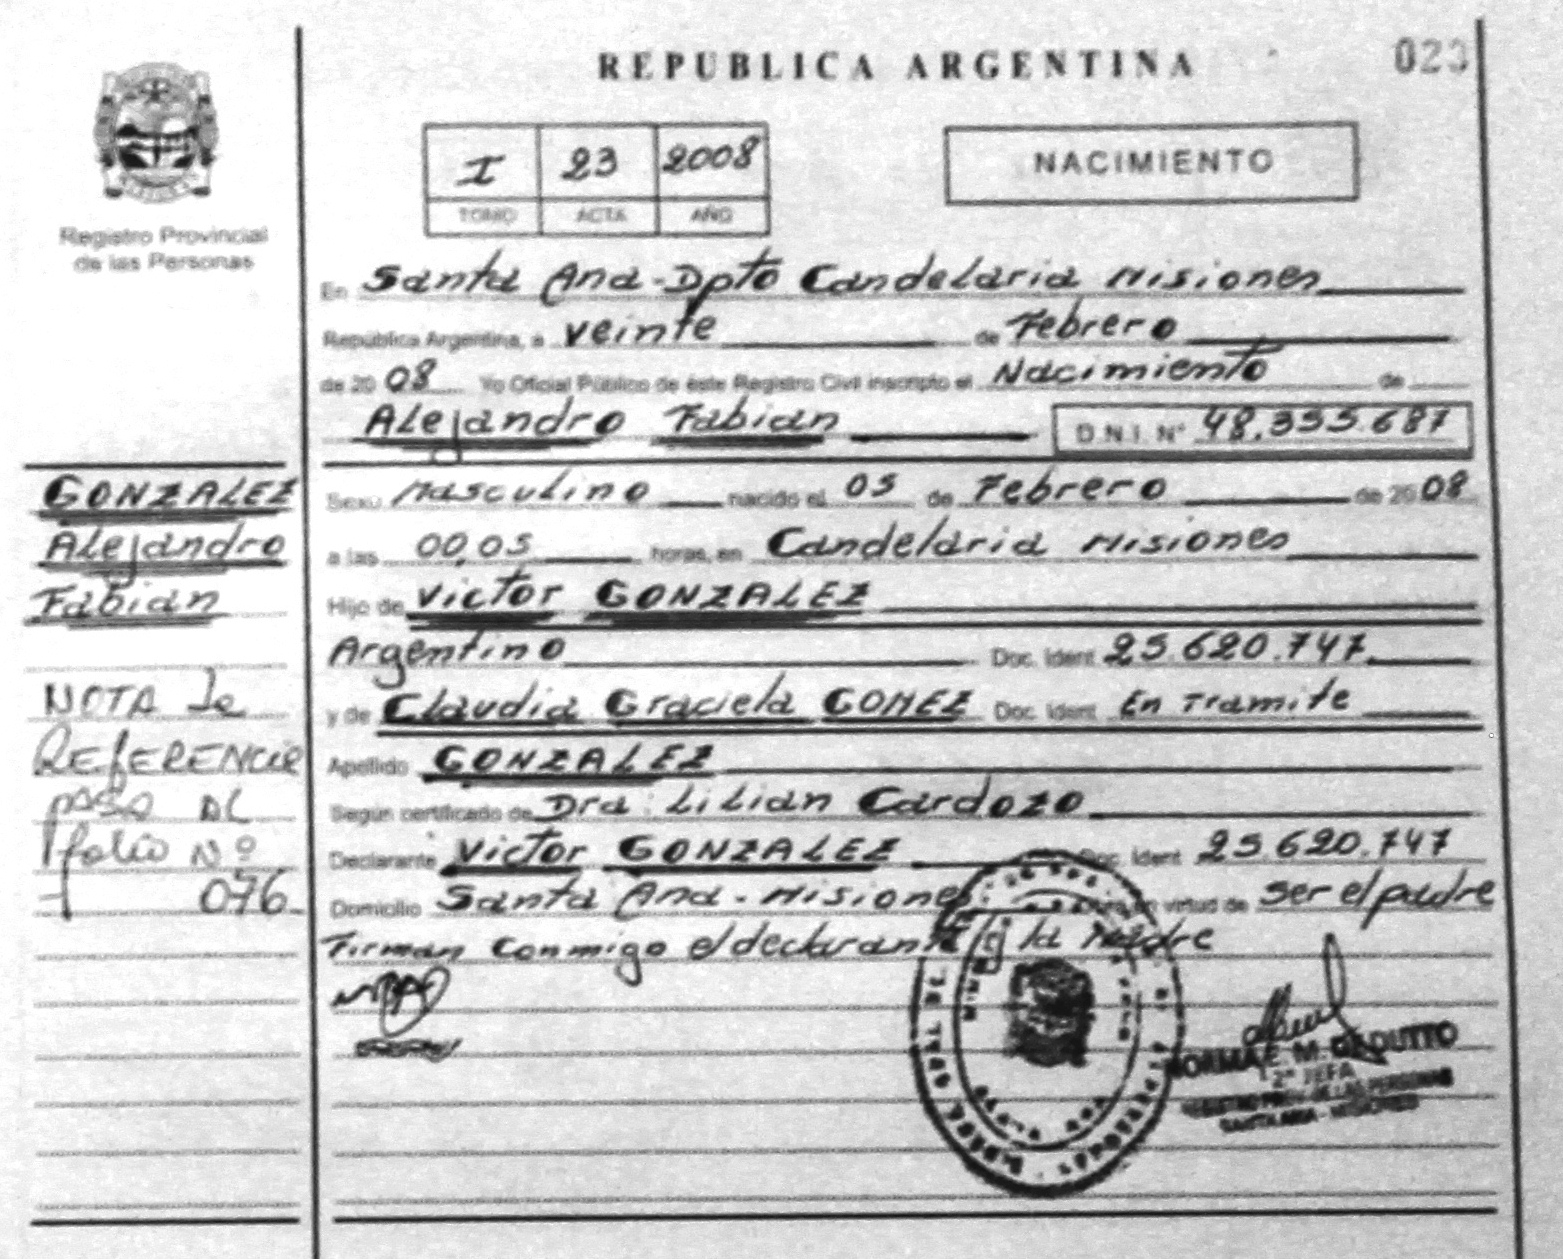 REPUBLICA ARGENTINA
023
I 23 2008
TOMO ACTA AÑO
NACIMIENTO
Registro Provincial
de las Personas
En Santa Ana - Dpto Candelaria Misiones
República Argentina, a veinte de Febrero
de 2008 Yo Oficial Público de éste Registro Civil inscripto el Nacimiento de
Alejandro Fabian D.N.I. Nº 48.355.687
GONZALEZ
Alejandro
Fabian
NOTA de
REFERENCIA
paso AL
folio Nº
076
Sexo Masculino nacido el 05 de Febrero de 2008
a las 00,05 horas, en Candelaria Misiones
Hijo de Victor GONZALEZ
Argentino Doc. Ident 25.620.747
y de Claudia Graciela GOMEZ Doc. Ident En Tramite
Apellido GONZALEZ
Según certificado de Dra. Lilian Cardozo
Declarante Victor GONZALEZ Doc. Ident 25.620.747
Domicilio Santa Ana - Misiones en virtud de ser el padre
Firman conmigo el declarante y la Madre
NORMA E. M.
2ª JEFA
SANTA ANA - MISIONES